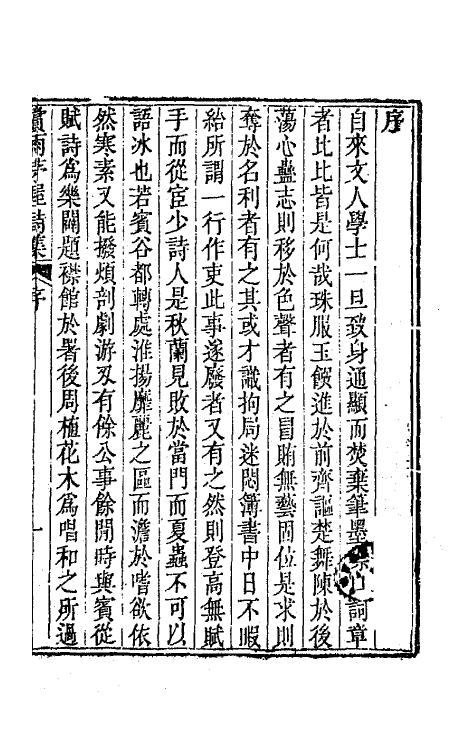 序
自來文人學士一旦致身通顯而焚棄筆墨詞章
者比比皆是何哉珠服玉饌進於前齊謳楚舞陳於後
蕩心蠱志則移於色聲者有之冒賄無藝固位是求則
奪於名利者有之其或才識拘局迷悶簿書中日不暇
給所謂一行作吏此事遂廢者又有之然則登高無賦
手而從宦少詩人是秋蘭見敗於當門而夏蟲不可以
語冰也若賓谷都轉處淮揚靡麗之區而澹於嗜欲依
然寒素又能撥煩剖劇游刃有餘公事餘閒時與賓從
賦詩爲樂闢題襟館於署後周植花木爲唱和之所過
賞雨茅屋詩集 序 一